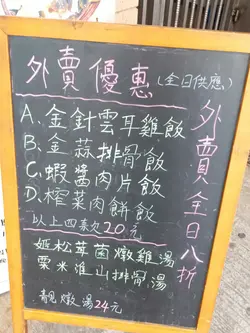 外賣優惠(全日供應)
A.金針雲耳雞飯
B.金蒜排骨飯
C.蝦醬肉片飯
D.榨菜肉餅飯
以上四款20元
姬松茸菌燉雞湯
粟米淮山排骨湯
靚燉湯24元
外賣全日八折